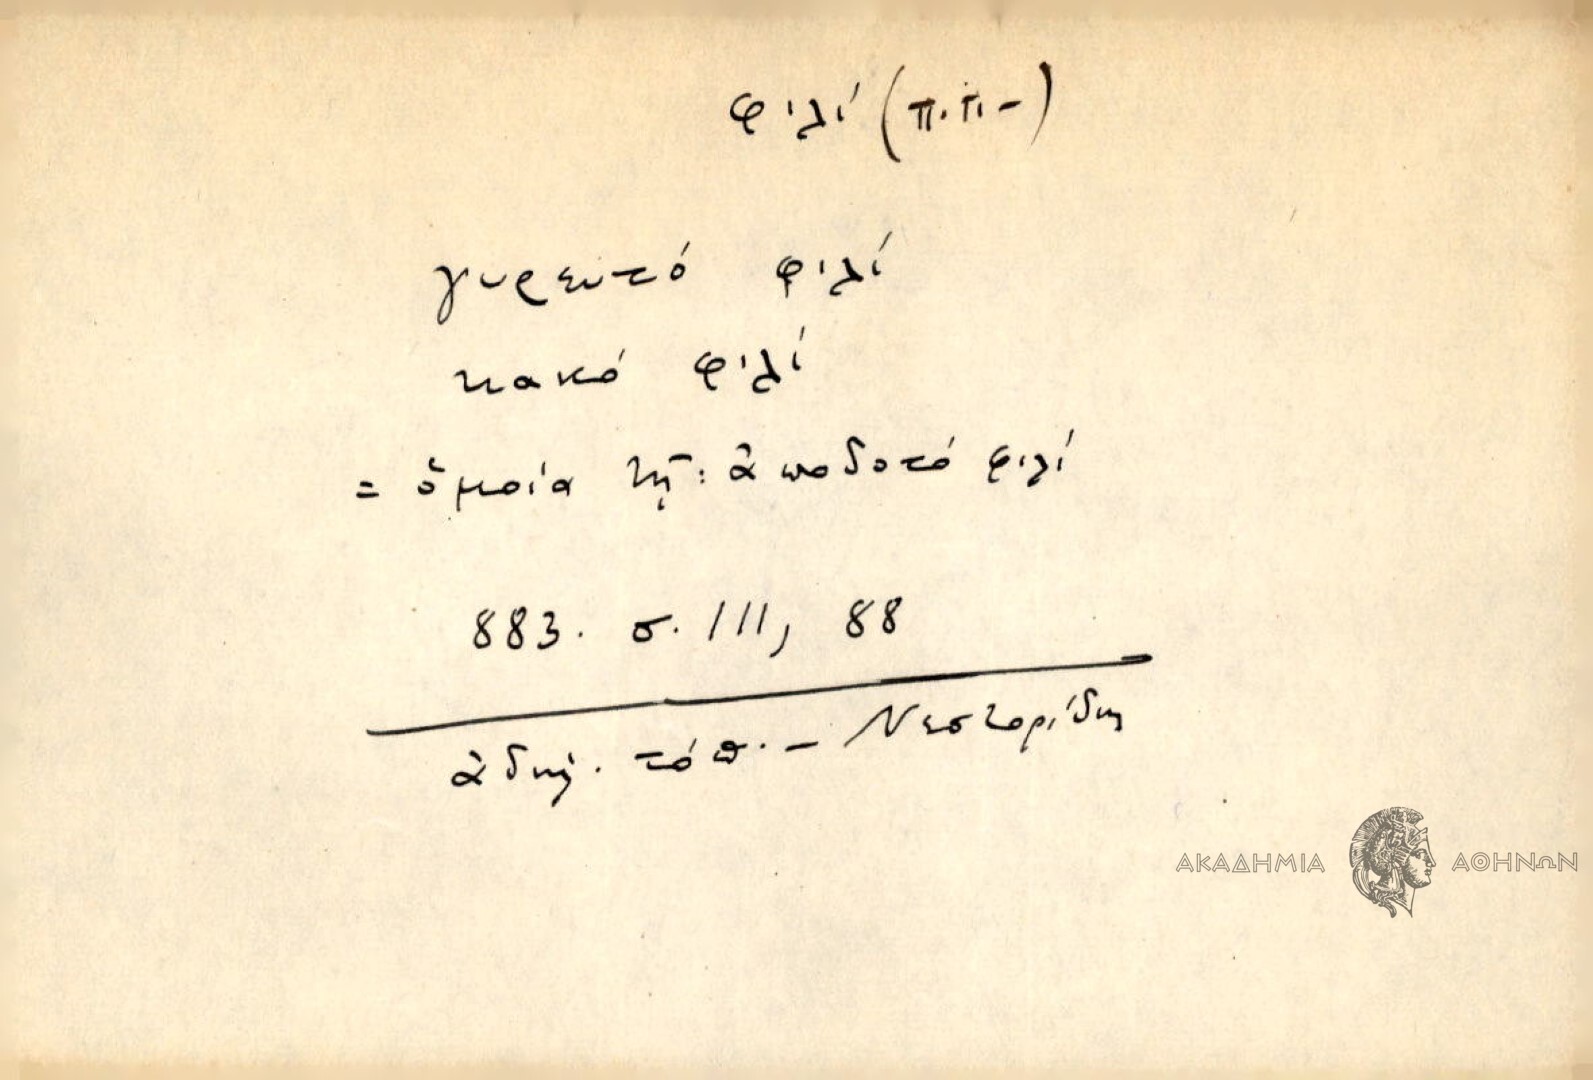 φιλί (π.π-)
γυρευτό φιλί
κακό φιλί
= ὁμοία τῇ: ἀποδοτό φιλί
883. σ. 111, 88
ἀδήλ. τόπ. - Νεστορίδη
ΑΚΑΔΗΜΙΑ ΑΘΗΝΩΝ